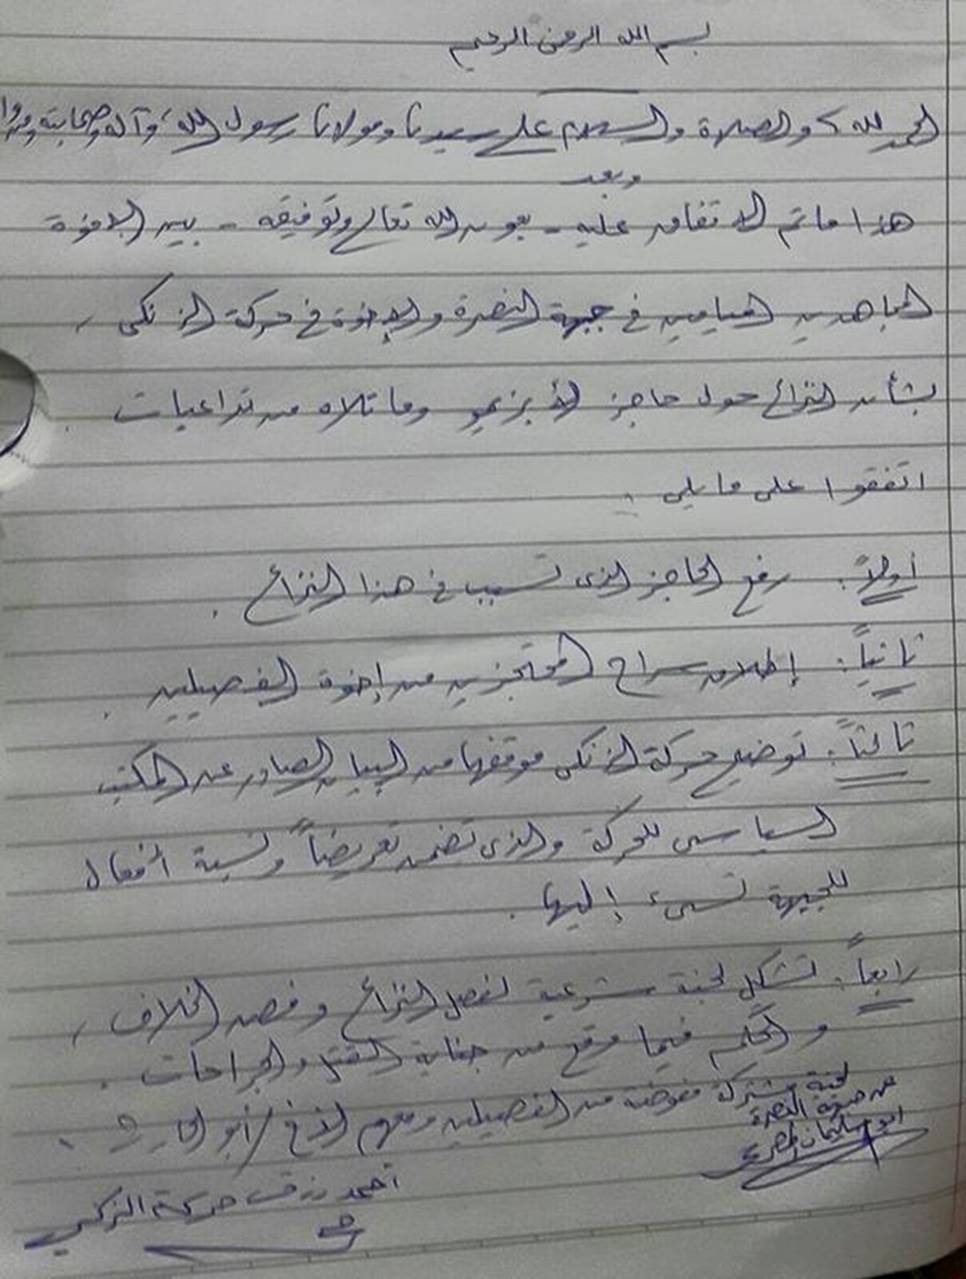 بسم الله الرحمن الرحيم
الحمد لله والصلاة والسلام على سيدنا ومولانا رسول الله وآله وصحابته
وبعد
هذا ما تم الاتفاق عليه - بعون الله تعالى وتوفيقه - بين الإخوة
المجاهدين الميامين في جبهة النصرة والإخوة في حركة الزنكي ،
بشأن النزاع حول حاجز وما تلاه من تداعيات .
اتفقوا على ما يلي :
أولاً : رفع الحاجز الذي تسبب في هذا النزاع .
ثانياً : إطلاق سراح المحتجزين من إخوة الفصيلين .
ثالثاً : توضيح حركة الزنكي موقفها من البيان الصادر عن المكتب
السياسي للحركة والذي تضمن تعريضاً ونسبة أفعال
للجبهة تسيء إليها .
رابعاً : تشكل لجنة شرعية لفصل النزاع وفصد الخلاف ،
والحكم فيما وقع من جناية القتل والجراحات .
لجنة مشتركة مفوضة من الفصيلين ومعهم الأخ / أبو الحارث .
عن جبهة النصرة
أبو سليمان المصري
أحمد رزق حركة الزنكي